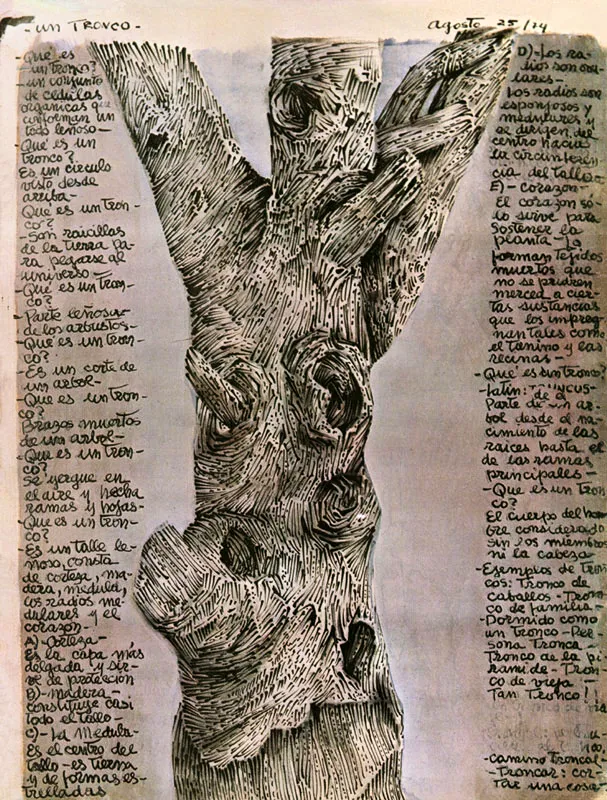 - Un TRONCO -
agosto 25/74
- Qué es
- un tronco?
- un conjunto
de células
orgánicas que
conforman un
todo leñoso -
Qué es un
tronco?
Es un círculo
visto desde
arriba -
Qué es un tron-
co?
- Son raicillas
de la tierra pa-
ra pegarse al
universo -
- Qué es un tron-
co?
- Parte leñosa
de los arbustos -
- Qué es un tron-
co?
- Es un corte de
un arbol -
- Qué es un tron-
co?
Brazos muertos
de un arbol -
- Que es un tron-
co?
Se yergue en
el aire y hecha
ramas y hojas -
- Que es un tron-
co?
- Es un talle le-
ñoso, consta
de corteza, ma-
dera, medula,
los radios me-
dulares y el
corazón -
A) - Corteza -
Es la capa más
delgada y sir-
ve de protección
B) - Madera -
constituye casi
todo el tallo -
C) - La Medula -
Es el centro del
tallo - es tierna
y de formas es-
trelladas
D) - Los ra-
dios
lares -
Los radios son
esponjosos y
medulares y
se dirigen del
centro hacia
la circunferen-
cia del tallo -
E) - corazón -
El corazón só-
lo sirve para
sostener la
planta - Lo
forman tejidos
muertos que
no se pudren
merced a cier-
tas sustancias
que los impreg-
nan tales como
el tanino y las
recinas -
- Qué es un tronco?
- Latín: TRUNCUS -
Parte de un ar-
bol desde el na-
cimiento de las
raices hasta el
de las ramas
principales -
- Que es un tron
co?
El cuerpo del hom
bre considerado
sin los miembros
ni la cabeza
- Ejemplos de tron
cos: Tronco de
caballos - Tron
co de familia -
- Dormido como
un Tronco - Per
sona Tronca -
Tronco de la pi-
ramide - Tron
co de vieja -
Tan Tronco!!
- Camino Troncal -
- Troncar: cor-
tar una cosa -